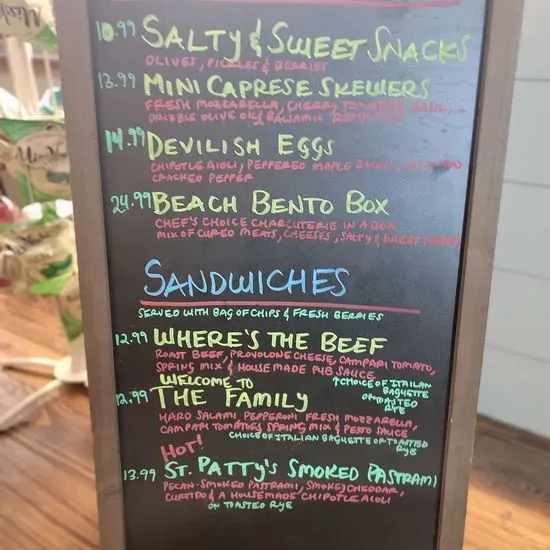 10.99 SALTY & SWEET SNACKS
OLIVES, PICKLES & BERRIES
13.99 MINI CAPRESE SKEWERS
FRESH MOZZARELLA, CHERRY TOMATOES, BASIL,
DRIZZLE OLIVE OIL & BALSAMIC
14.99 DEVILISH EGGS
CHIPOTLE AIOLI, PEPPERED MAPLE BACON, AND
CRACKED PEPPER
24.99 BEACH BENTO BOX
CHEF'S CHOICE CHARCUTERIE IN A BOX
MIX OF CURED MEATS, CHEESES, SALTY & SWEET
SANDWICHES
SERVED WITH BAG OF CHIPS & FRESH BERRIES
12.99 WHERE'S THE BEEF
ROAST BEEF, PROVOLONE CHEESE, CAMPARI TOMATO,
SPRING MIX & HOUSE MADE PUB SAUCE
↑CHOICE OF ITALIAN
BAGUETTE
OR TOASTED
RYE
WELCOME TO
12.99 THE FAMILY
HARD SALAMI, PEPPERONI FRESH MOZZARELLA,
CAMPARI TOMATOES, SPRING MIX & PESTO SAUCE
CHOICE OF ITALIAN BAGUETTE OR TOASTED
RYE
HOT!
13.99 ST. PATTY'S SMOKED PASTRAMI
PECAN-SMOKED PASTRAMI, SMOKEY CHEDDAR,
CURTIDO & A HOUSEMADE CHIPOTLE AIOLI
ON TOASTED RYE